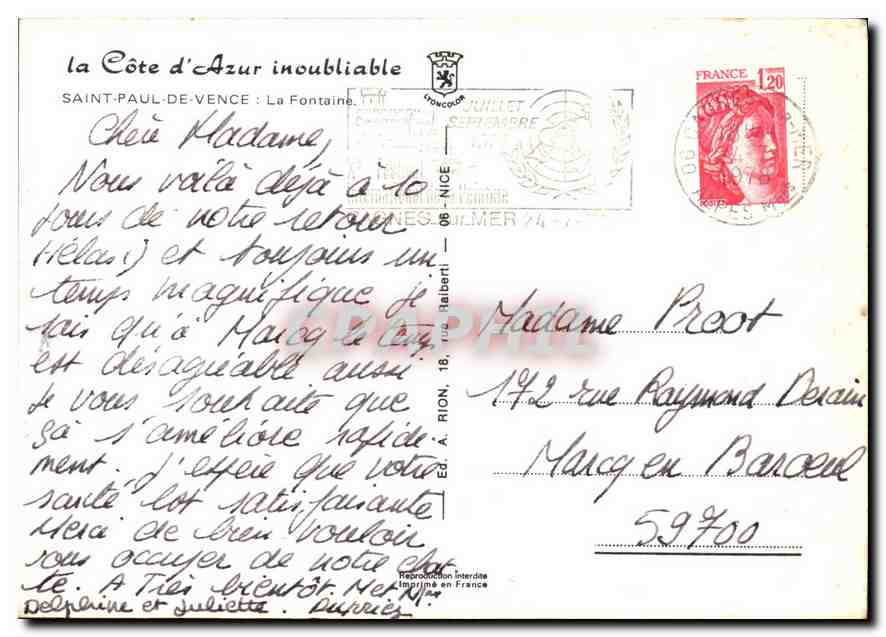 la Côte d'Azur inoubliable
SAINT-PAUL-DE-VENCE : La Fontaine.
LYONCOLOR
Chère Madame,
Nous voilà déjà à 10
jours de notre retour
(Hélas!) et toujours un
temps magnifique je
sais qu'à Marcq le temps
est désagréable aussi
je vous souhaite que
çà s'améliore rapide-
ment. J'espère que votre
santé est satisfaisante
Merci de bien vouloir
vous occuper de notre chat-
te. A Très bientôt. M et Mme
Delphine et Juliette. Dupriez
Ed. A. RION, 18, rue Raiberti — 06 - NICE
Reproduction interdite
Imprimé en France
JUILLET
SEPTEMBRE
International de la Peinture
CAGNES-SUR-MER 24-7-
FRANCE 1,20
POSTES
06 CAGNES-S-MER
1978
ALPES Mmes
CPAPHIL
Madame Proot
172 rue Raymond Derain
Marcq en Baroeul
59700